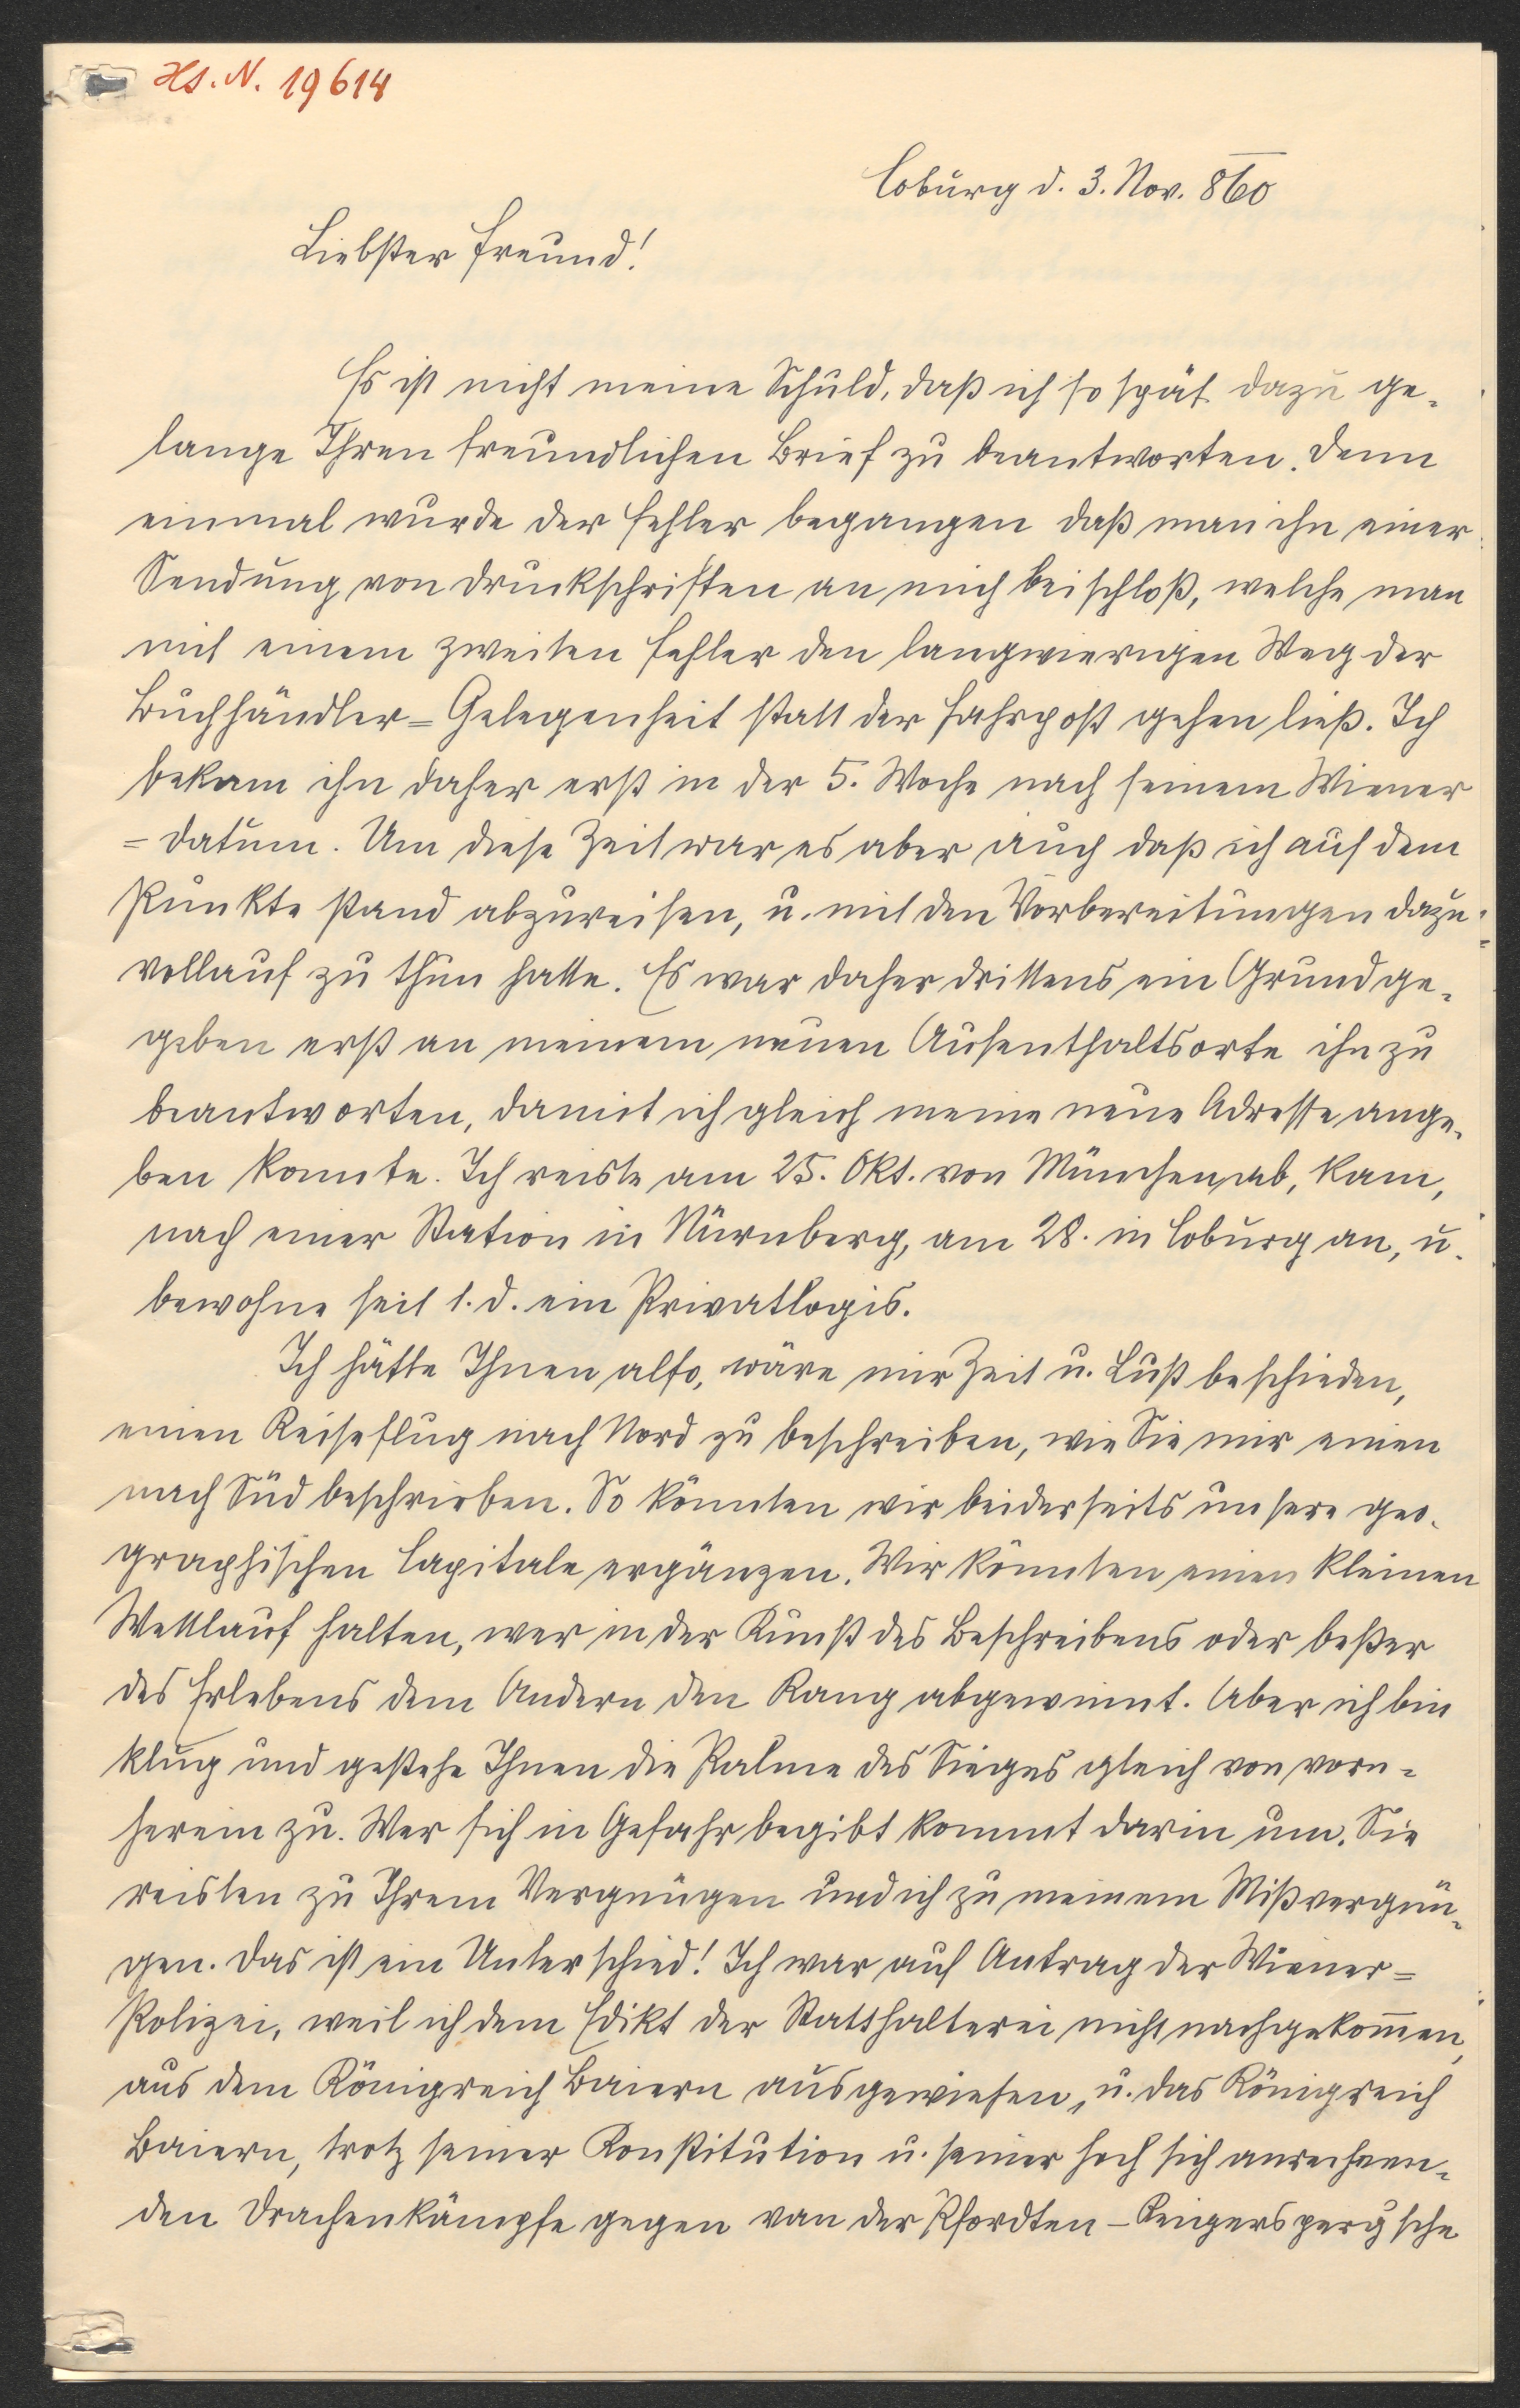 Hs. N. 19614
Coburg d. 3. Nov. 860
Liebster Freund!
Es ist nicht meine Schuld, daß ich so spät dazu ge-
lange Ihren freundlichen Brief zu beantworten. Denn
einmal wurde der Fehler begangen daß man ihn einer
Sendung von Druckschriften an mich beischloß, welche man
mit einem zweiten Fehler den langwierigen Weg der
Buchhändler=Gelegenheit statt der Fahrpost gehen ließ. Ich
bekam ihn daher erst in der 5. Woche nach seinem Wiener
=Datum. Um diese Zeit war es aber auch daß ich auf dem
Punkte stand abzureisen, u. mit den Vorbereitungen dazu
vollauf zu thun hatte. Es war daher drittens ein Grund ge-
geben erst an meinem neuen Aufenthaltsorte ihn zu
beantworten, damit ich gleich meine neue Adresse ange-
ben konnte. Ich reiste am 25. Okt. von München ab, kam,
nach einer Station in Nürnberg, am 28. in Coburg an, u.
bewohne seit 1. d. ein Privatlogis.
Ich hätte Ihnen also, wäre mir Zeit u. Lust beschieden,
einen Reiseflug nach Nord zu beschreiben, wie Sie mir einen
nach Süd beschrieben. So könnten wir beiderseits unsere geo-
graphischen Capitale ergänzen. Wir könnten einen kleinen
Wettlauf halten, wer in der Kunst des Beschreibens oder beßer
des Erlebens dem Andern den Rang abgewinnt. Aber ich bin
klug und gestehe Ihnen die Palme des Sieges gleich von vorn=
herein zu. Wer sich in Gefahr begibt kommt darin um. Sie
reisten zu Ihrem Vergnügen und ich zu meinem Mißvergnü-
gen. Das ist ein Unterschied! Ich war auf Antrag der Wiener=
Polizei, weil ich dem Edikt der Statthalterei nicht nachgekom̄en,
aus dem Königreich Baiern ausgewiesen, u. das Königreich
Baiern, trotz seiner Konstitution u. seiner hoch sich anrechnen-
den Drachenkämpfe gegen van der Pfordten-Reigersperg'sche